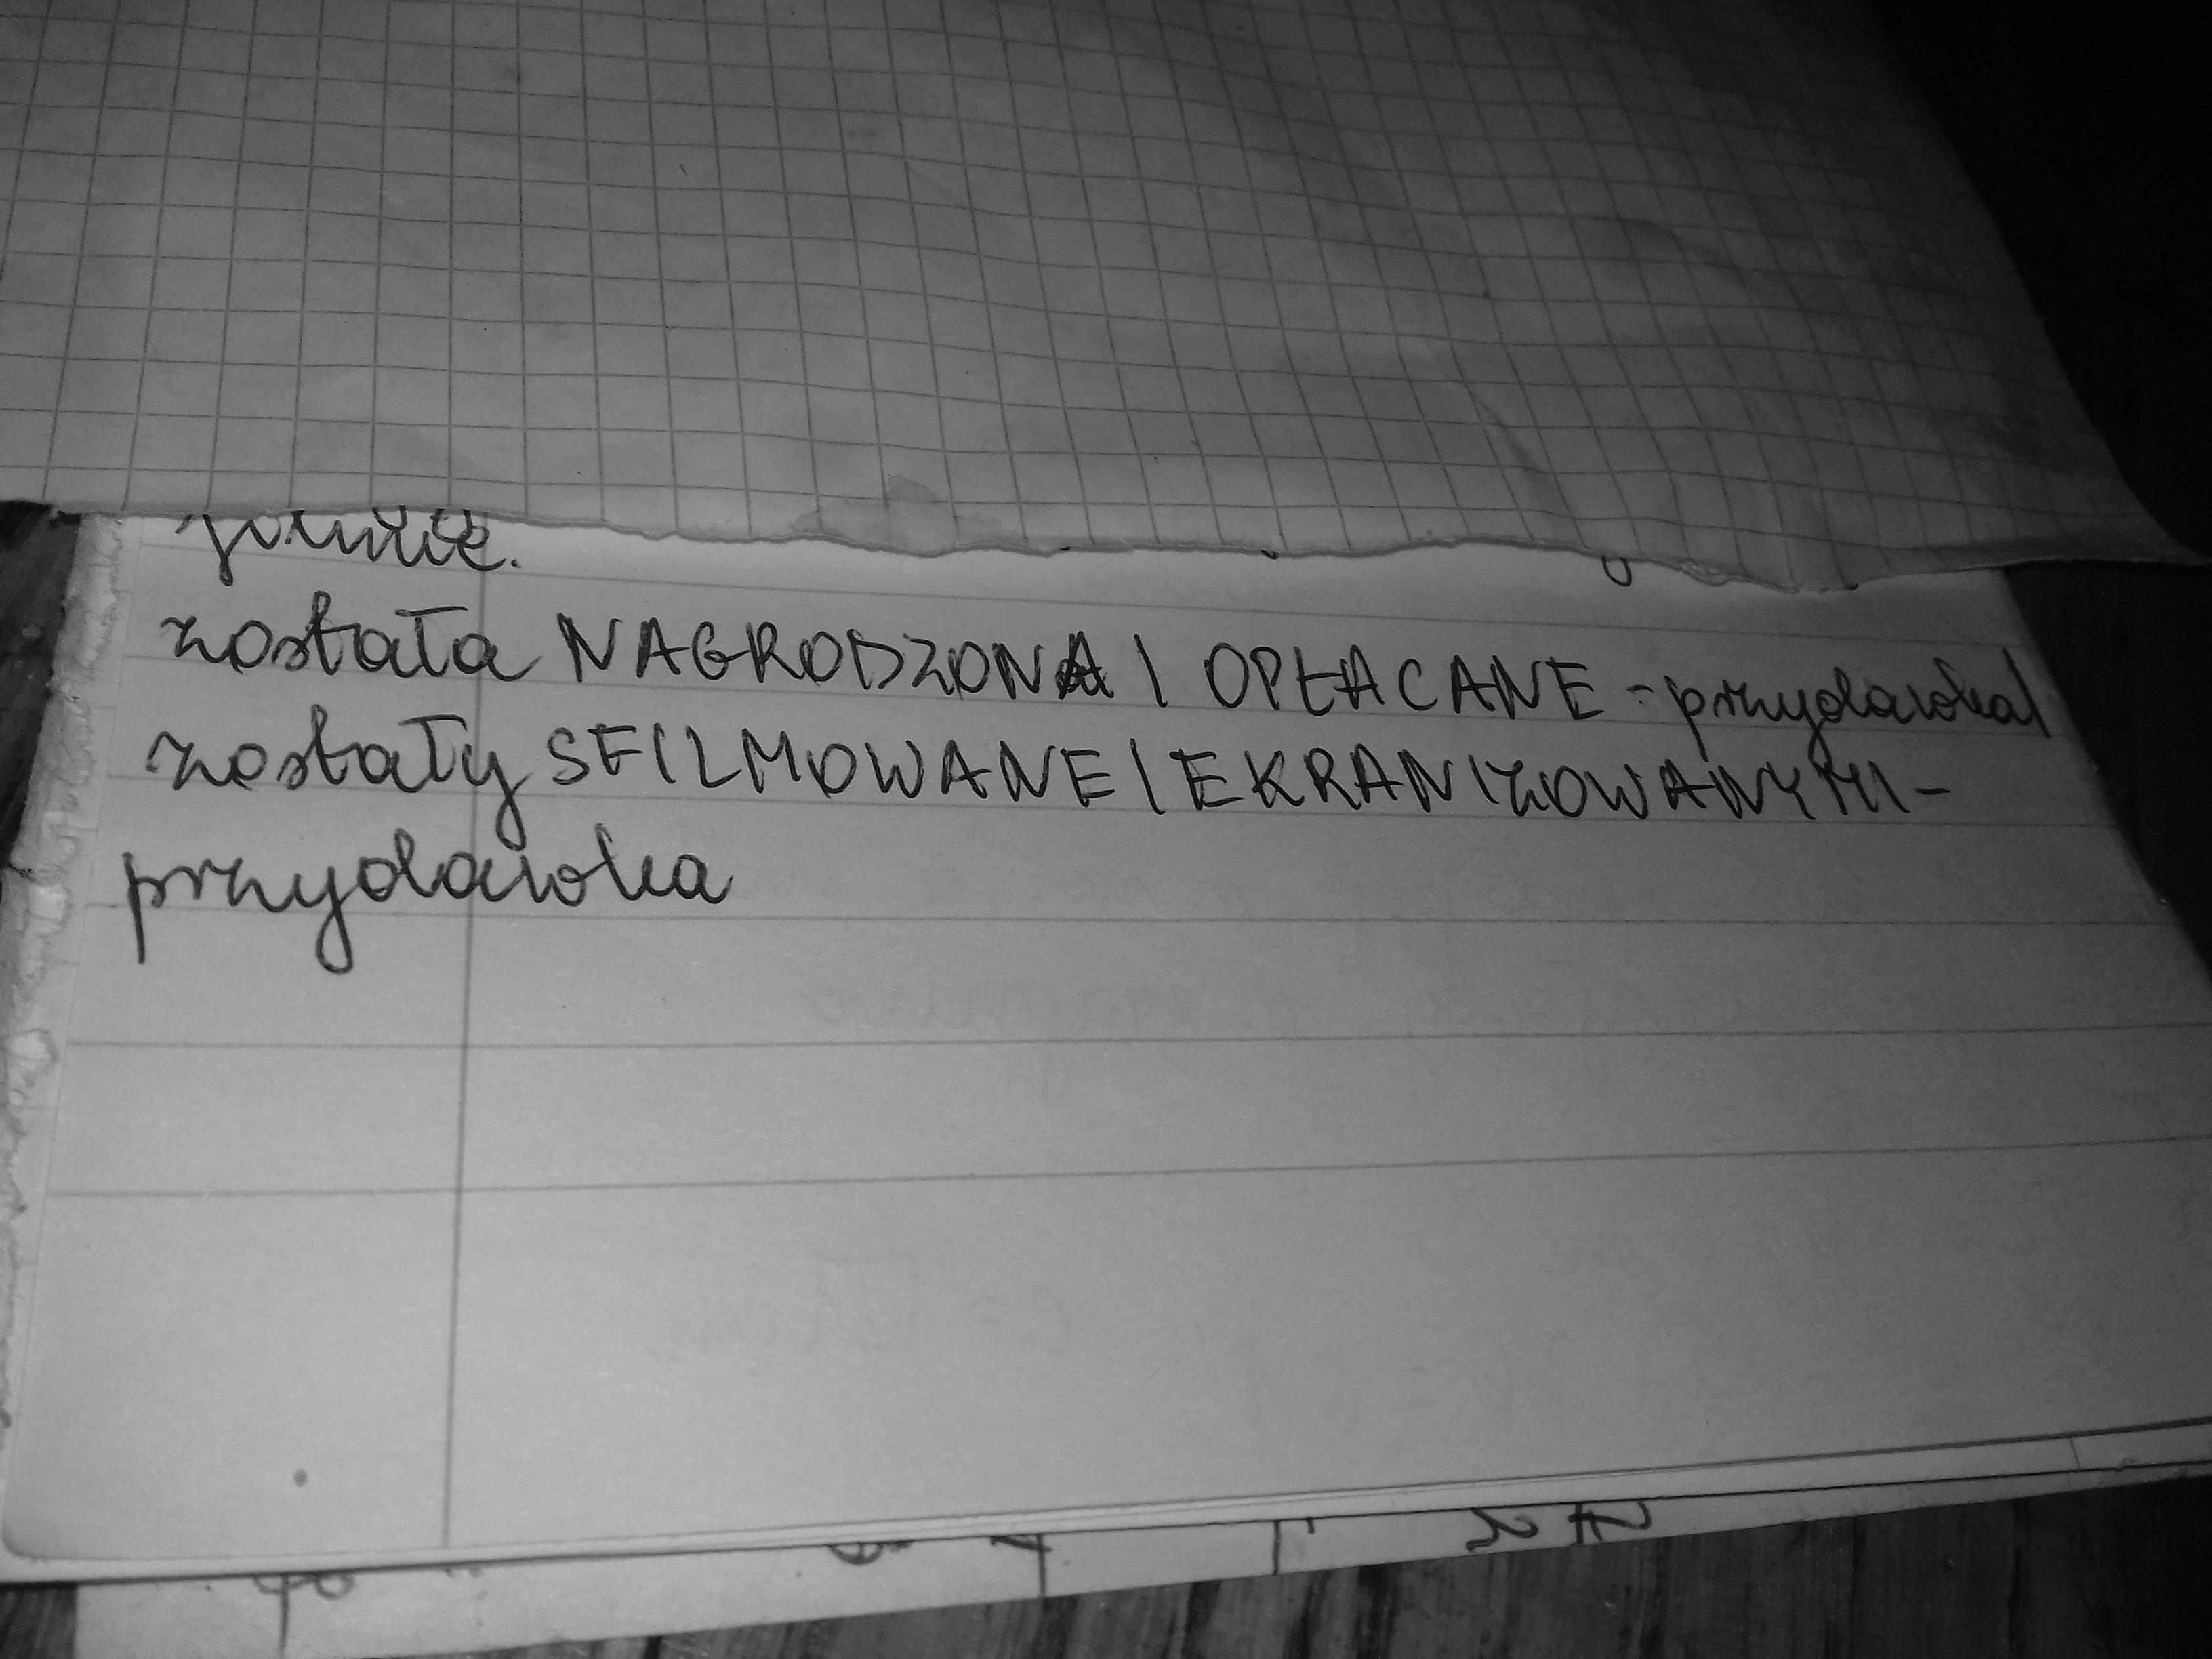 została NAGRODZONA I OPŁACANE - przydawka
zostały SFILMOWANE I EKRANIZOWANYMI -
przydawka